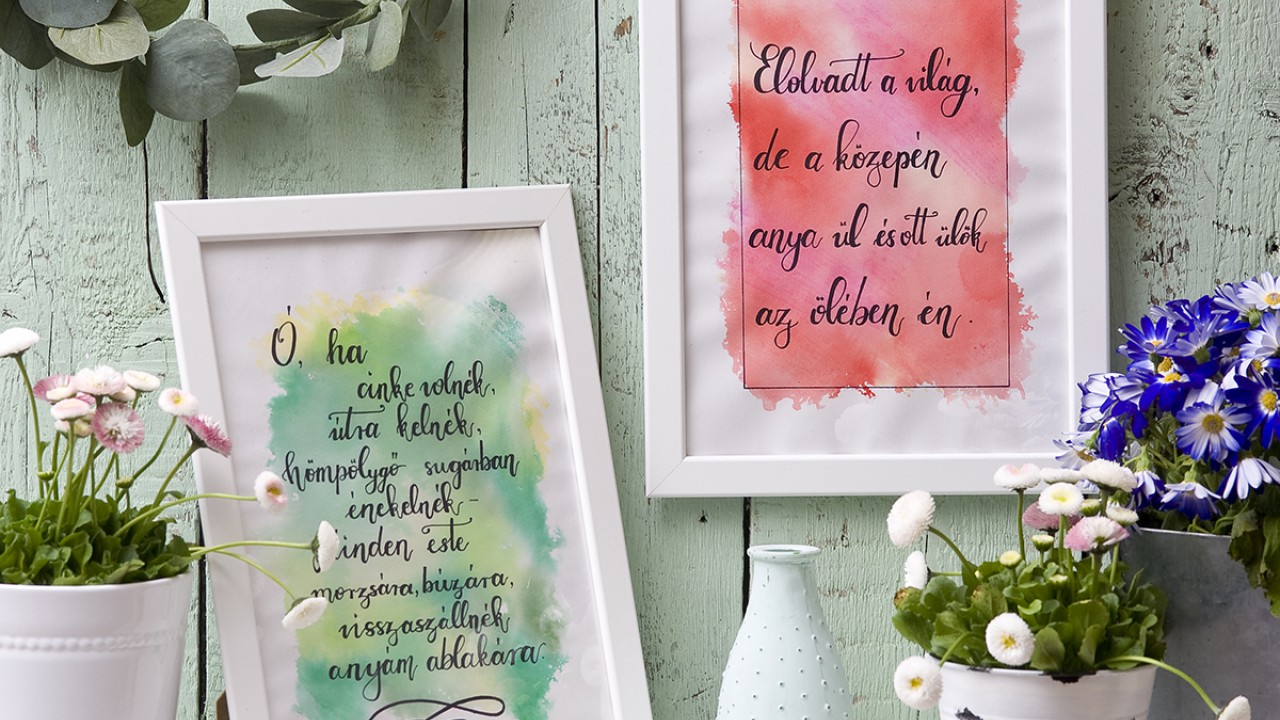 Ó, ha
cinke volnék,
útra kelnék,
hömpölygő sugárban
énekelnék -
inden este
morzsára, búzára,
visszaszállnék
anyám ablakára.
Elolvadt a világ,
de a közepén
anya ül és ott ülök
az ölében én.